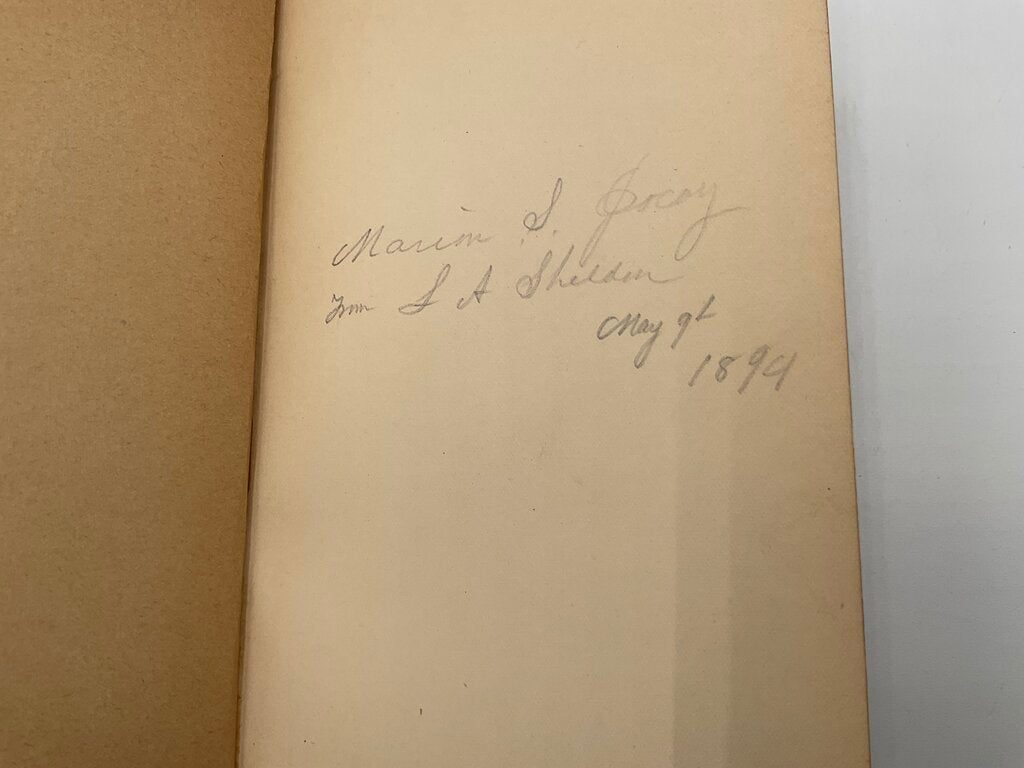 Marion S.
from S A Sheldon
May 9t
1894